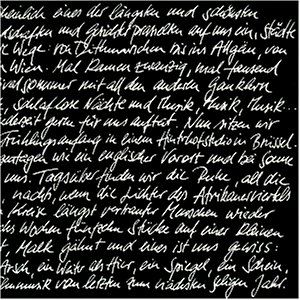 heinlich eines der längsten und schönsten
schaften und prasselten auf uns ein, Städte
Wege: von Dithmarschen bis ins Allgäu, von
Wien. Mal kamen zwanzig, mal tausend
sommer mit all den anderen Gauklern
, schlaflose Nächte und Musik, Musik, Musik...
ederzeit gern für uns auftat. Nun sitzen wir
Frühlingsanfang in einem Hinterhofstudio in Brüssel.
wie ein englischer Vorort und bei Sonne
uns. Tagsüber finden wir die Ruhe, all die
nachts, wenn die Lichter des Afrikanerviertels
Kreis längst vertrauter Menschen wieder
chs Wochen fünfzehn Stücke auf einer kleinen
gähnt und eines ist uns gewiss:
Arsch, ein ein Spiegel, ein Schein,
musik vom letzten zum nächsten seligen Jahr.